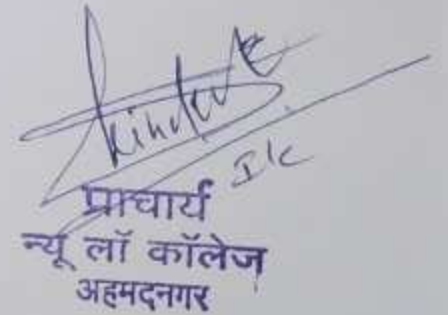 I/c
प्राचार्य
न्यू लॉ कॉलेज
अहमदनगर